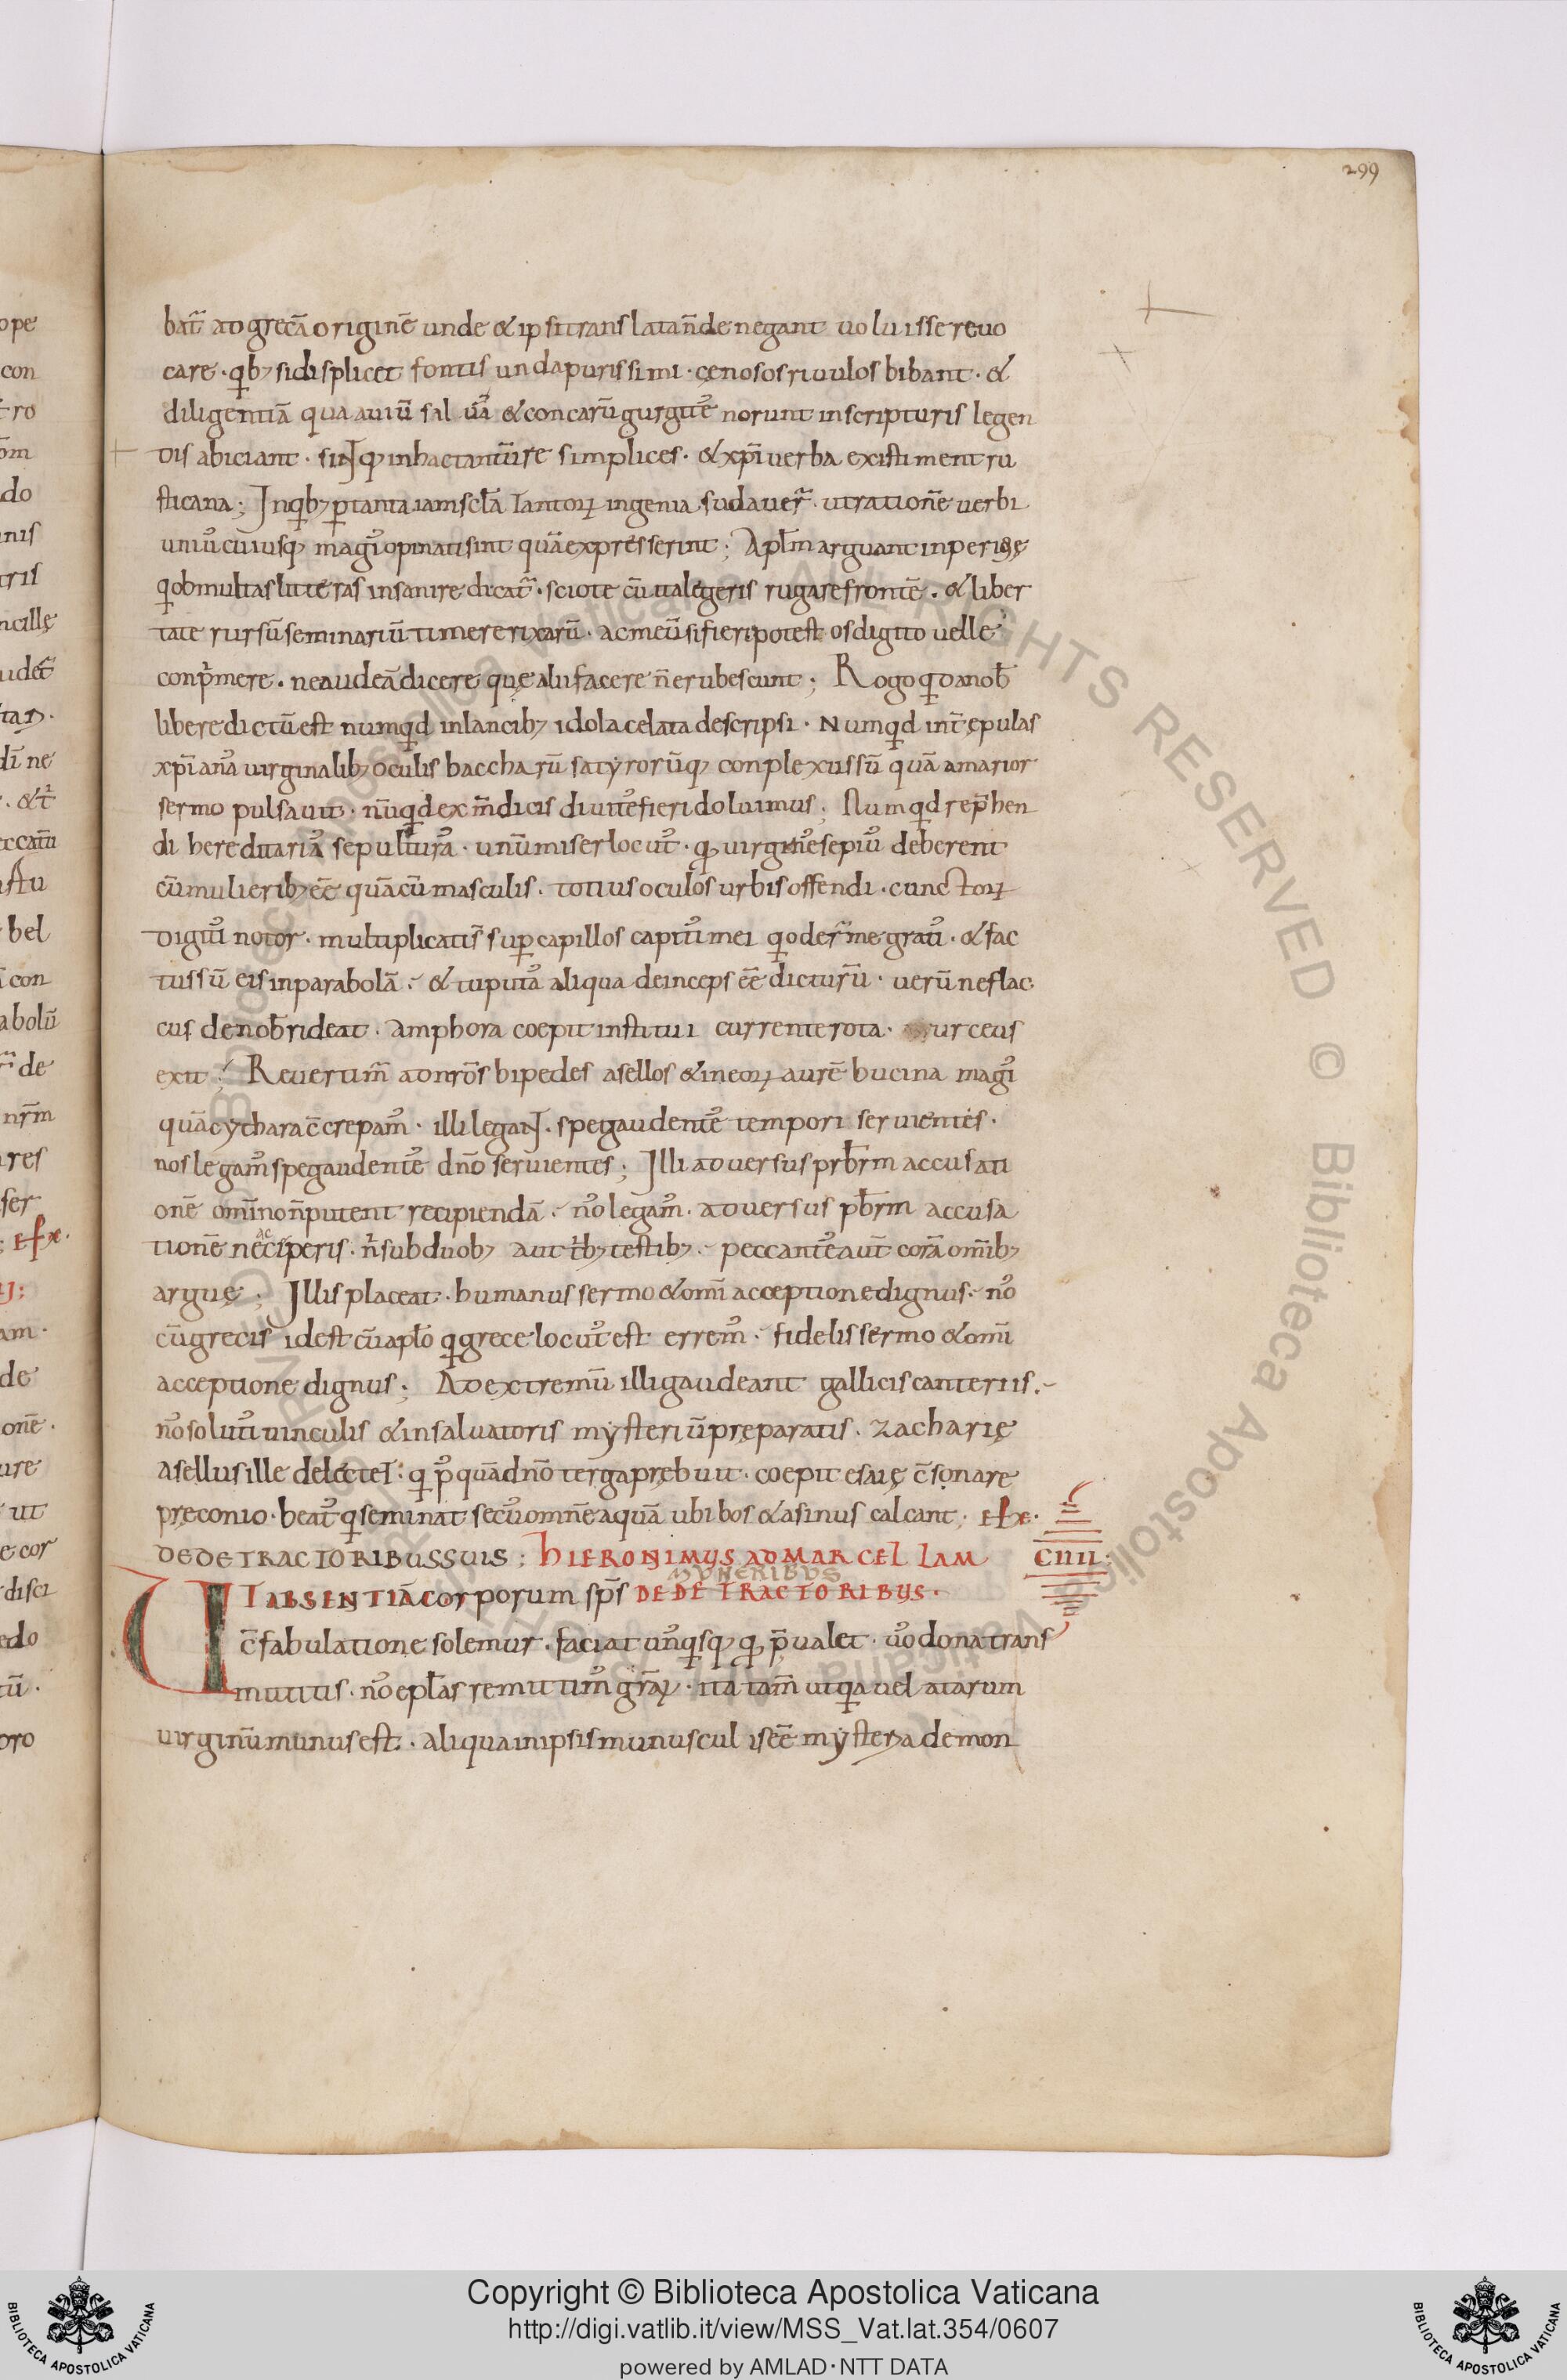 299
bat̃ ad grecã originẽ unde & ipsi translata ñ denegant uoluisse reuo
care · qib; si displicet fontis unda purissimi · cęnosos riuulos bibant · &
diligentiã qua auiũ sal uã & concarũ gurgitẽ norunt in scripturis legen
dis abiciant · sintq; in hac tantũ re simplices · & xpi uerba existiment ru
sticana ; In qib; p tanta iam scła tantoꝝ ingenia sudauer̃ · ut rationẽ uerbi
uni᷒cuiusq; magi᷒ opinati sint quã expresserint ; Apłm arguant inperitię
qi ob multas litteras insanire dicat̃ · scio te cũ ita legeris rugare frontẽ · & liber
tate rursũ seminariũ timere rixarũ · ac meũ si fieri potest os digito uelle
conp̃mere · ne audeã dicere quę alii facere ñ erubescunt ; Rogo qid a nob̃
libere dictũ est numqid in lancib; idola celata descripsi · Numqid int̃ epulas
xpianã uirginalib; oculis baccharũ satyrorũq; conplexus sũ quã amarior
sermo pulsauit · nũqid ex m̃dicis diuite᷒ fieri doluimus ; Numqid rep̃hen
di hereditaria᷒ sepultura᷒ · unũ miser locut᷒ · qđ uirgine᷒ sepiu᷒ deberent
cũ mulierib; eẽ quã cũ masculis · totius oculos urbis offendi · cunctoꝝ
digiti᷒ notor · multiplicati s̃ sup capillos capiti᷒ mei qi oder̃ me grati᷒ · & fac
tus sũ eis in parabolã · & tu puta᷒ aliqua deinceps eẽ dicturũ · uerũ ne flac
cus de nob̃ rideat · Amphora coepit institui currente rota · urceus
exit ; Reuertim̃ ad nr̃os bipedes asellos & in eoꝝ aurẽ bucina magi᷒
quã cythara c̃crepam᷒ · illi legant · spe gaudente᷒ tempori seruientes ·
nos legam᷒ spe gaudente᷒ dño seruientes ; Illi aduersus prb̃rm accusati
onẽ omĩno ñ putent recipiendã · no᷒ legam᷒ · aduersus pb̃rm accusa
tionẽ ne acciperis · ñ sub duob; aut t̃b; testib; · peccante᷒ aut̃ corã omĩb;
argue ; Illis placeat · humanus sermo & omĩ acceptione dignus · no᷒
cũ grecis id est cũ apło qi grece locut᷒ est errem᷒ · fidelis sermo & omĩ
acceptione dignus ; Ad extremũ illi gaudeant gallicis canteriis ·
no᷒ soluti᷒ uinculis & in saluatoris mysteriũ pręparatis · zacharię
asellus ille delectet : qi p᷒quã dño terga prębuit · coepit esaię c̃sonare
pręconio · beat᷒ qi seminat secu᷒ omnẽ aquã ubi bos & asinus calcant ·
DE DETRACTORIBUS SUIS ; HIERONIMUS AD MARCELLAM CIIII ;
MUNERIBUS
UT ABSENTIÃ corporum sp̃s DE DETRACTORIBUS ·
c̃fabulatione solemur · faciat un᷒qisq; qđ p̃ualet · uo᷒ dona trans
mittitis · no᷒ epłas remittim᷒ gr̃aꝝ · ita tam̃ ut qia uelatarum
uirginũ munus est · aliqua in ipsis munusculis eẽ mysteria demon
Copyright © Biblioteca Apostolica Vaticana
http://digi.vatlib.it/view/MSS_Vat.lat.354/0607
powered by AMLAD·NTT DATA